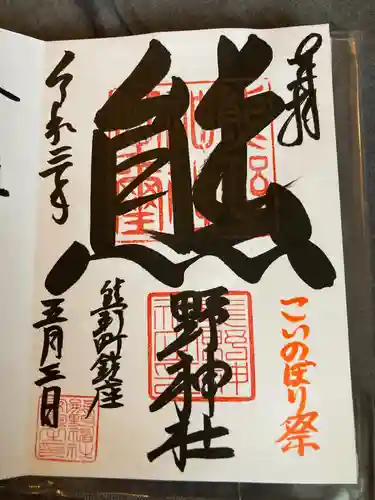 奉拝
熊
野神社
こいのぼり祭
熊野町鎮座
令和三年
五月三日